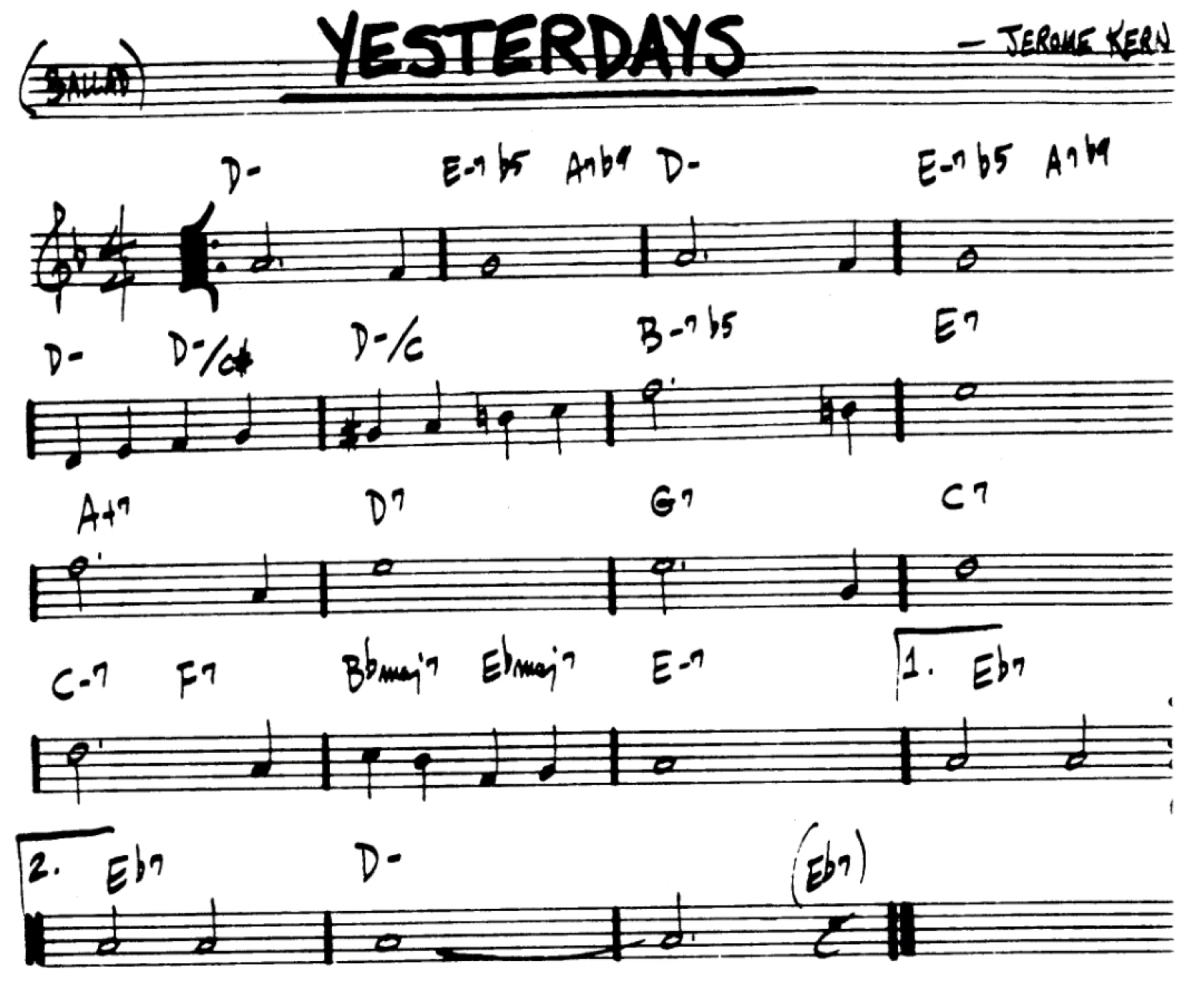 YESTERDAYS
(BALLAD)
— JEROME KERN
D- E-7b5 A7b9 D- E-7b5 A7b9
D- D-/C# D-/C B-7b5 E7
A+7 D7 G7 C7
C-7 F7 Bbmaj7 Ebmaj7 E-7 1. Eb7
2. Eb7 D- (Eb7)